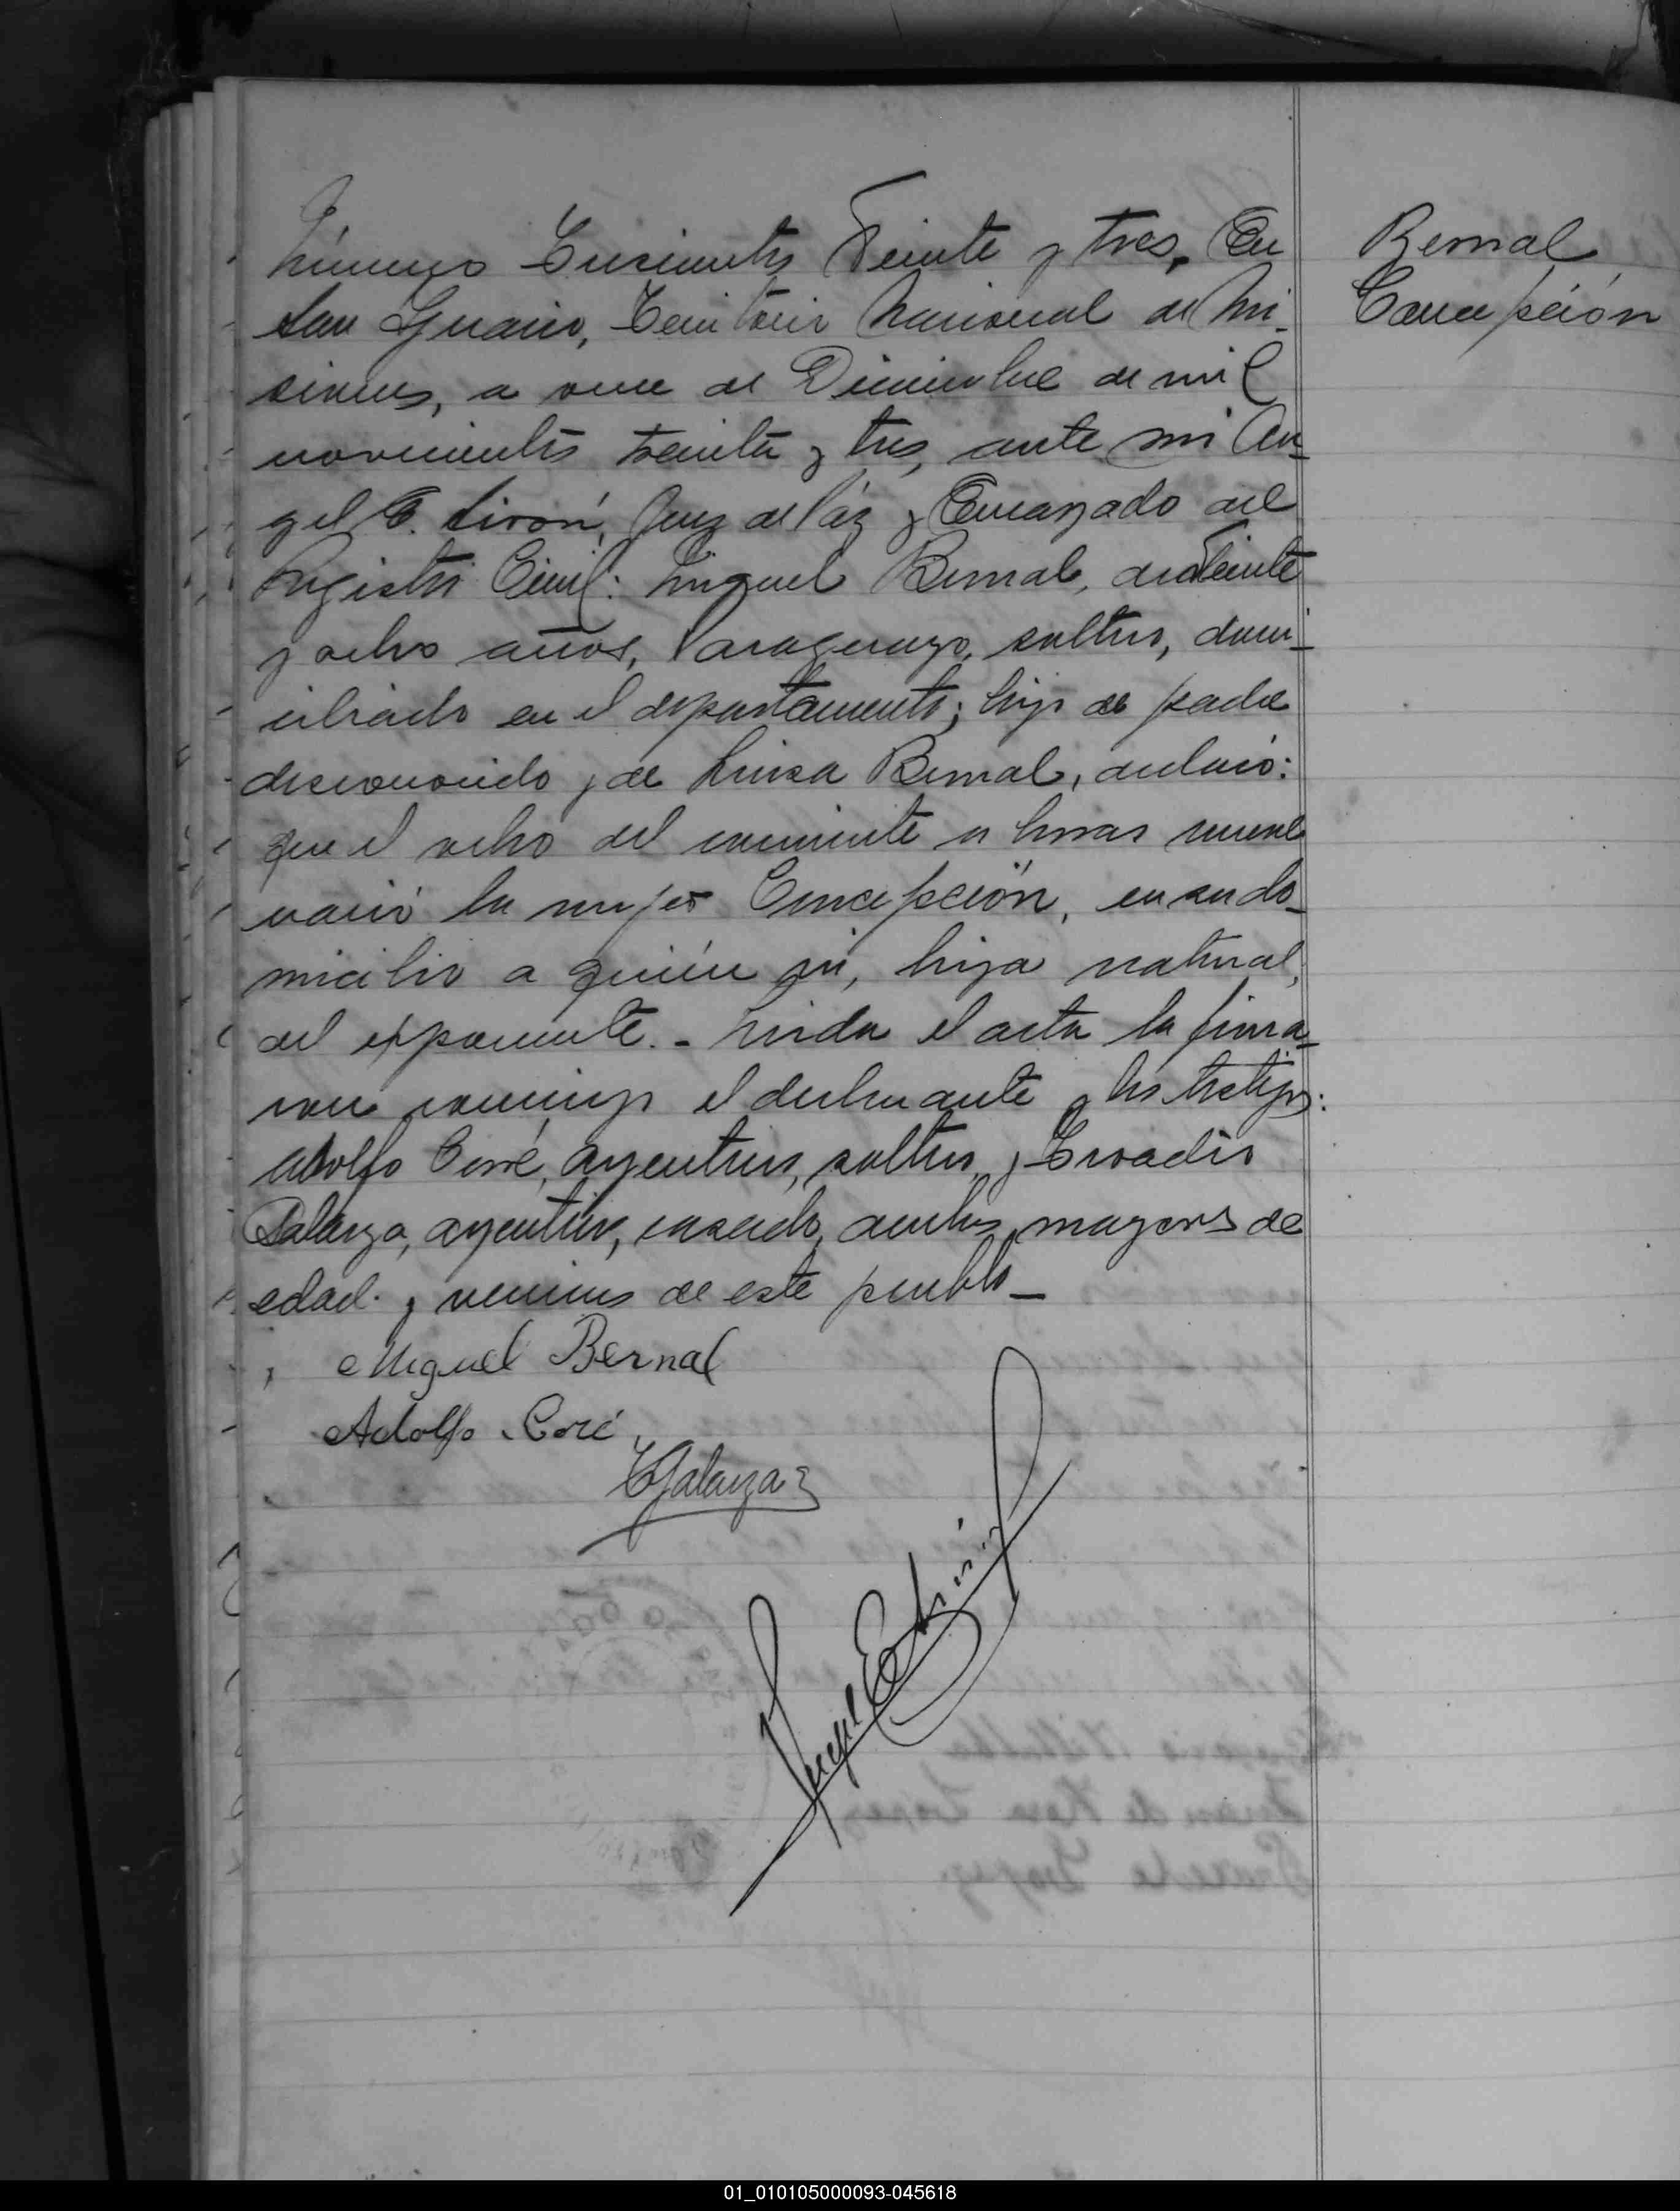 Número Trescientos Veinte y tres. En
San Ignacio, Territorio Nacional de Mi-
siones, a once de Diciembre de mil
novecientos treinta y tres, ante mi An-
gel E. Juez de Páz y Encargado del
Registro Civil: Miguel Bernal, de veinte
y ocho años, Paraguayo, soltero, domi-
ciliado en el departamento; hijo de padre
desconocido y de Luisa Bernal, declaró:
que el ocho del corriente a horas nueve
nació la mujer Concepción, en su do-
micilio a quién ví, hija natural,
del exponente.- Leida el acta la firma-
ron conmigo el declarante y los testigos:
Adolfo Corré, argentino, soltero, y
Galarza, argentino, casado, ambos mayores de
edad. y vecinos de este pueblo_
Miguel Bernal
Adolfo Coré
Galarza
Angel E.
Bernal
Concepción
01_010105000093-045618